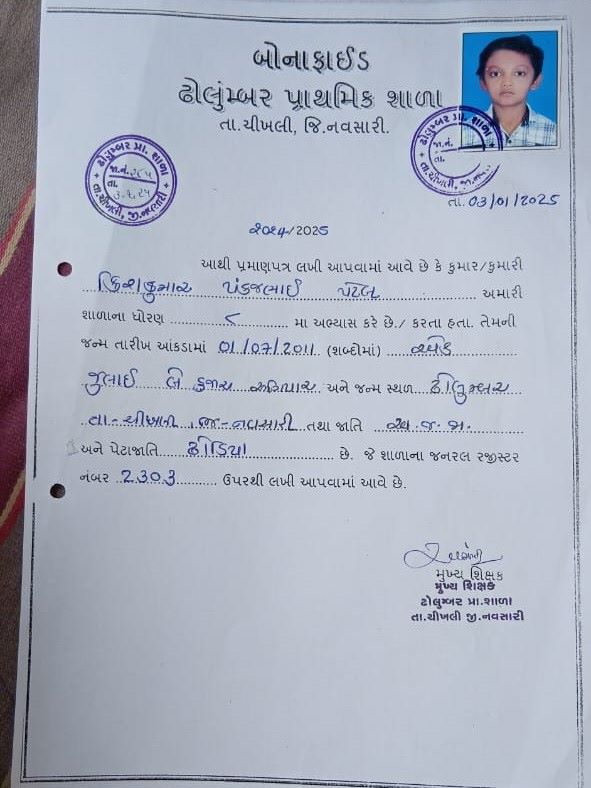 બોનાફાઈડ
ઢોલુંમ્બર પ્રાથમિક શાળા
તા.ચીખલી, જિ.નવસારી.
ઢોલુમ્બર પ્રા. શાળા
જા.નં.
તા.
તા.ચીખલી, જી.નવસારી
ઢોલુમ્બર પ્રા. શાળા
જા.નં.
તા.
તા.ચીખલી, જી.નવ
તા. 03/01/2025
૨૦૨૪/2025
આથી પ્રમાણપત્ર લખી આપવામાં આવે છે કે કુમાર/કુમારી
ક્રિશકુમાર પંકજભાઈ પટેલ અમારી
શાળાના ધોરણ ૮ મા અભ્યાસ કરે છે./ કરતા હતા. તેમની
જન્મ તારીખ આંકડામાં 01/07/2011 (શબ્દોમાં)
જુલાઈ બે હજાર અગિયાર અને જન્મ સ્થળ ઢોલુમ્બર
તા-ચીખલી જી-નવસારી તથા જાતિ અ.જ.જા.
અને પેટાજાતિ ઢોડિયા છે. જે શાળાના જનરલ રજીસ્ટર
નંબર 2303 ઉપરથી લખી આપવામાં આવે છે.
મુખ્ય શિક્ષક
મુખ્ય શિક્ષક
ઢોલુમ્બર પ્રા.શાળા
તા.ચીખલી જી.નવસારી